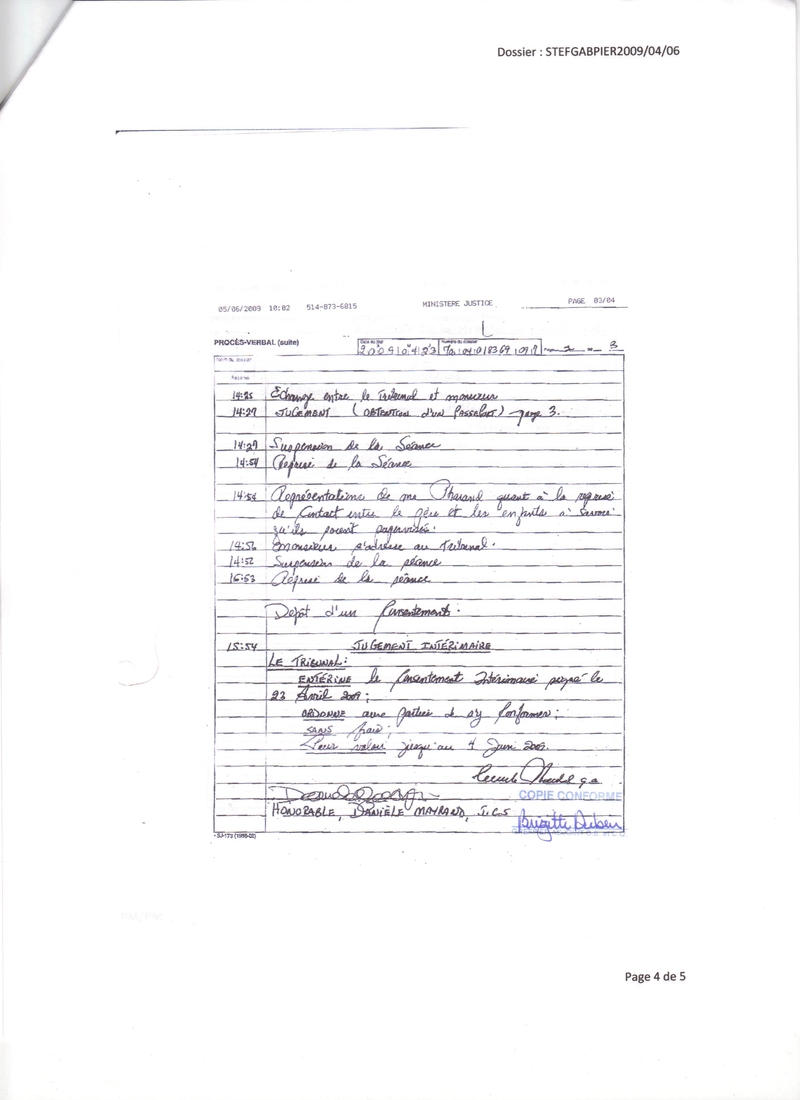 Dossier : STEFGABPIER2009/04/06
05/06/2009 10:02 514-873-6815 MINISTERE JUSTICE PAGE 03/04
PROCÈS-VERBAL (suite)
2009 04 23
3
14:25 Échange entre le Tribunal et monsieur
14:27 JUGEMENT (OBTENTION d'un PASSEPORT) page 3.
14:29 Suspension de la Séance
14:54 Reprise de la Séance
14:54 Représentations de me Pharand quant à la reprise
de Contact entre le père et les enfants à savoir
qu'ils soient supervisés.
14:56 Monsieur s'adresse au Tribunal.
14:52 Suspension de la séance
Reprise de la séance
Dépôt d'un Consentement.
15:54 JUGEMENT INTÉRIMAIRE
LE TRIBUNAL:
ENTÉRINE le Consentement Intérimaire signé le
23 Avril 2009;
ORDONNE aux parties de s'y Conformer;
SANS frais;
Pour valoir jusqu'au Juin 2009.
g.a.
COPIE CONFORME
HONORABLE, DANIÈLE MAYRAND, J.C.S
SJ-173
Page 4 de 5